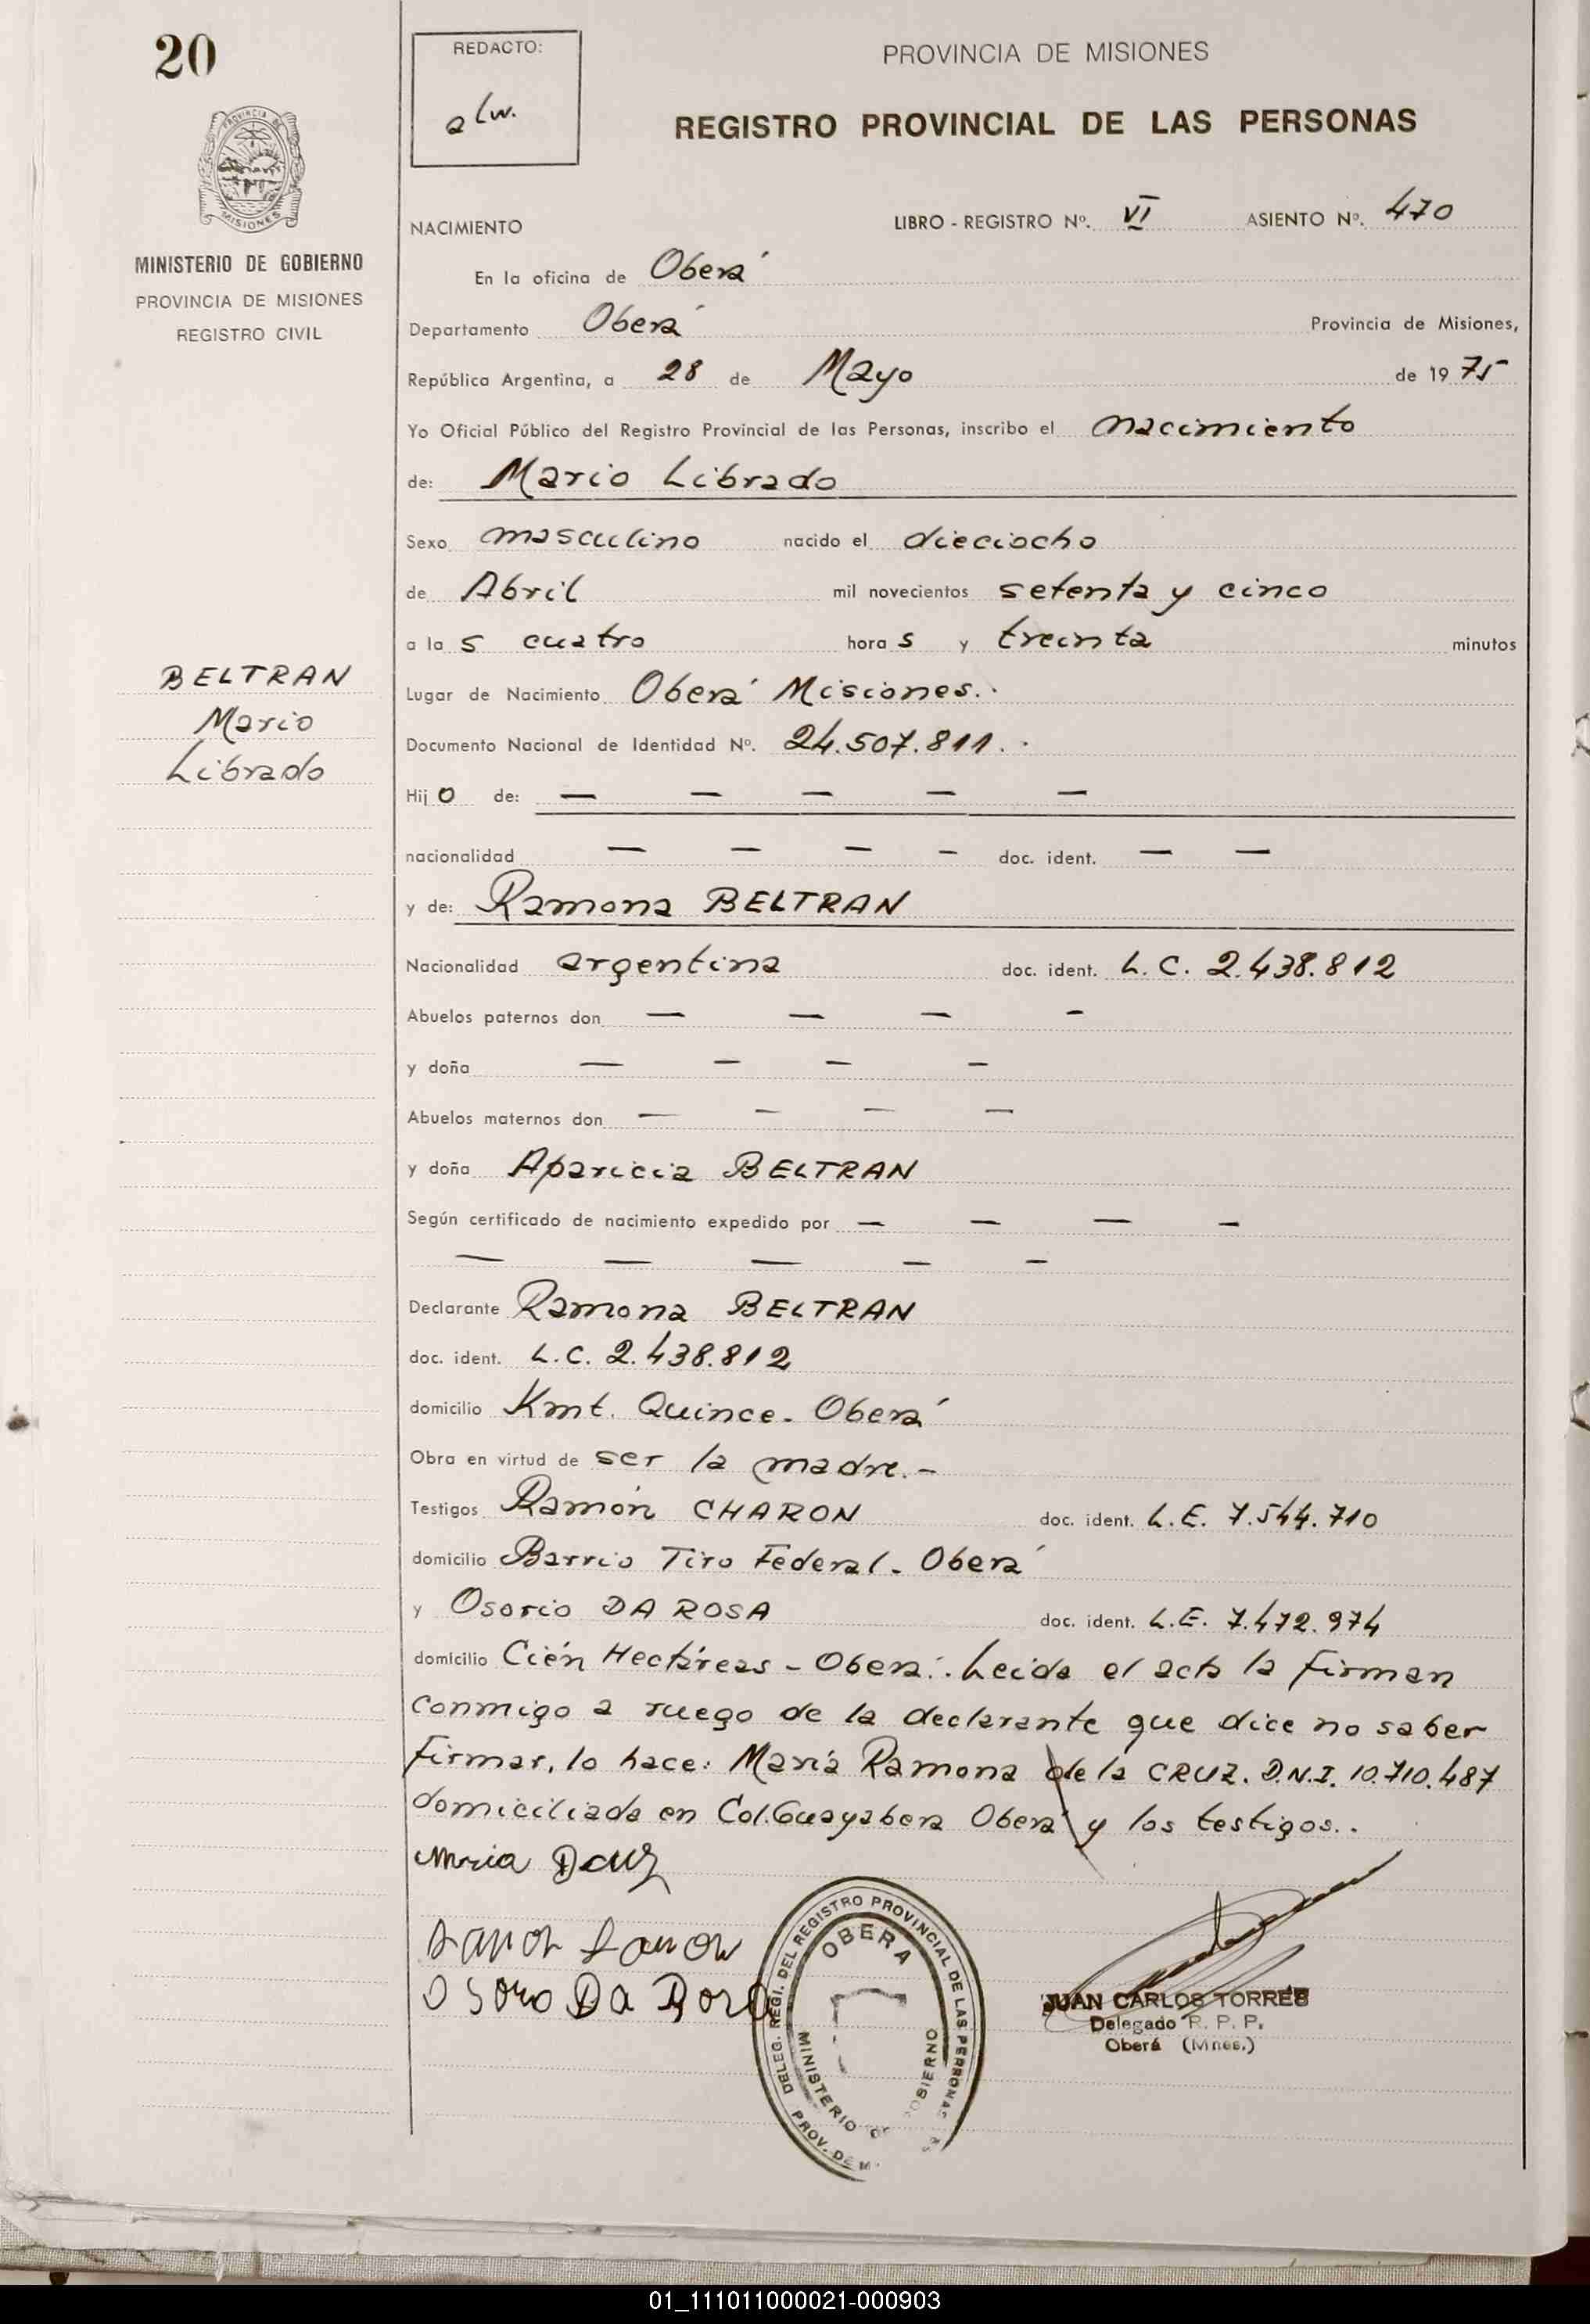 20
MINISTERIO DE GOBIERNO
PROVINCIA DE MISIONES
REGISTRO CIVIL
BELTRAN
Mario
Librado
REDACTO:
PROVINCIA DE MISIONES
REGISTRO PROVINCIAL DE LAS PERSONAS
NACIMIENTO LIBRO - REGISTRO Nº. VI ASIENTO Nº. 470
En la oficina de Oberá
Departamento Oberá Provincia de Misiones,
República Argentina, a 28 de Mayo de 1975
Yo Oficial Público del Registro Provincial de las Personas, inscribo el nacimiento
de: Mario Librado
Sexo masculino nacido el dieciocho
de Abril mil novecientos setenta y cinco
a las cuatro horas y treinta minutos
Lugar de Nacimiento Oberá Misiones.
Documento Nacional de Identidad Nº. 24.507.811.
Hijo de: — — — — —
nacionalidad — — — — doc. ident. — —
y de: Ramona BELTRAN
Nacionalidad argentina doc. ident. L.C. 2.438.812
Abuelos paternos don — — — -
y doña — — — —
Abuelos maternos don — — — —
y doña Aparicia BELTRAN
Según certificado de nacimiento expedido por — — — —
— — — — —
Declarante Ramona BELTRAN
doc. ident. L.C. 2.438.812
domicilio Kmt. Quince. Oberá
Obra en virtud de ser la madre.-
Testigos Ramón CHARON doc. ident. L.E. 7.544.710
domicilio Barrio Tiro Federal. Oberá
y Osorio DA ROSA doc. ident. L.E. 7.472.974
domicilio Cién Hectáreas - Oberá. Leida el acta la firman
conmigo a ruego de la declarante que dice no saber
firmar, lo hace: María Ramona de la CRUZ. D.N.I. 10.710.487
domiciliada en Col. Guayabera Oberá y los testigos..
Osorio Da Rosa
DELEG. REGI. DEL REGISTRO PROVINCIAL DE LAS PERSONAS
OBERA
MINISTERIO GOBIERNO
PROV. DE M
JUAN CARLOS TORRES
Delegado R. P. P.
Oberá (Mnes.)
01_111011000021-000903